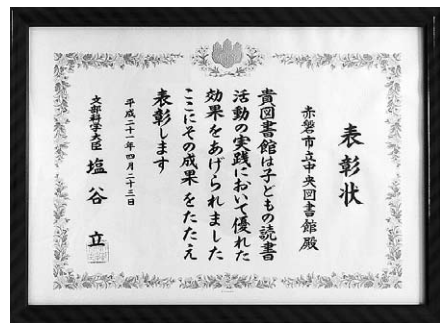 表彰状
赤磐市立中央図書館殿
貴図書館は子どもの読書
活動の実践において優れた
効果をあげられました
ここにその成果をたたえ
表彰します
平成二十一年四月二十三日
文部科学大臣 塩谷 立